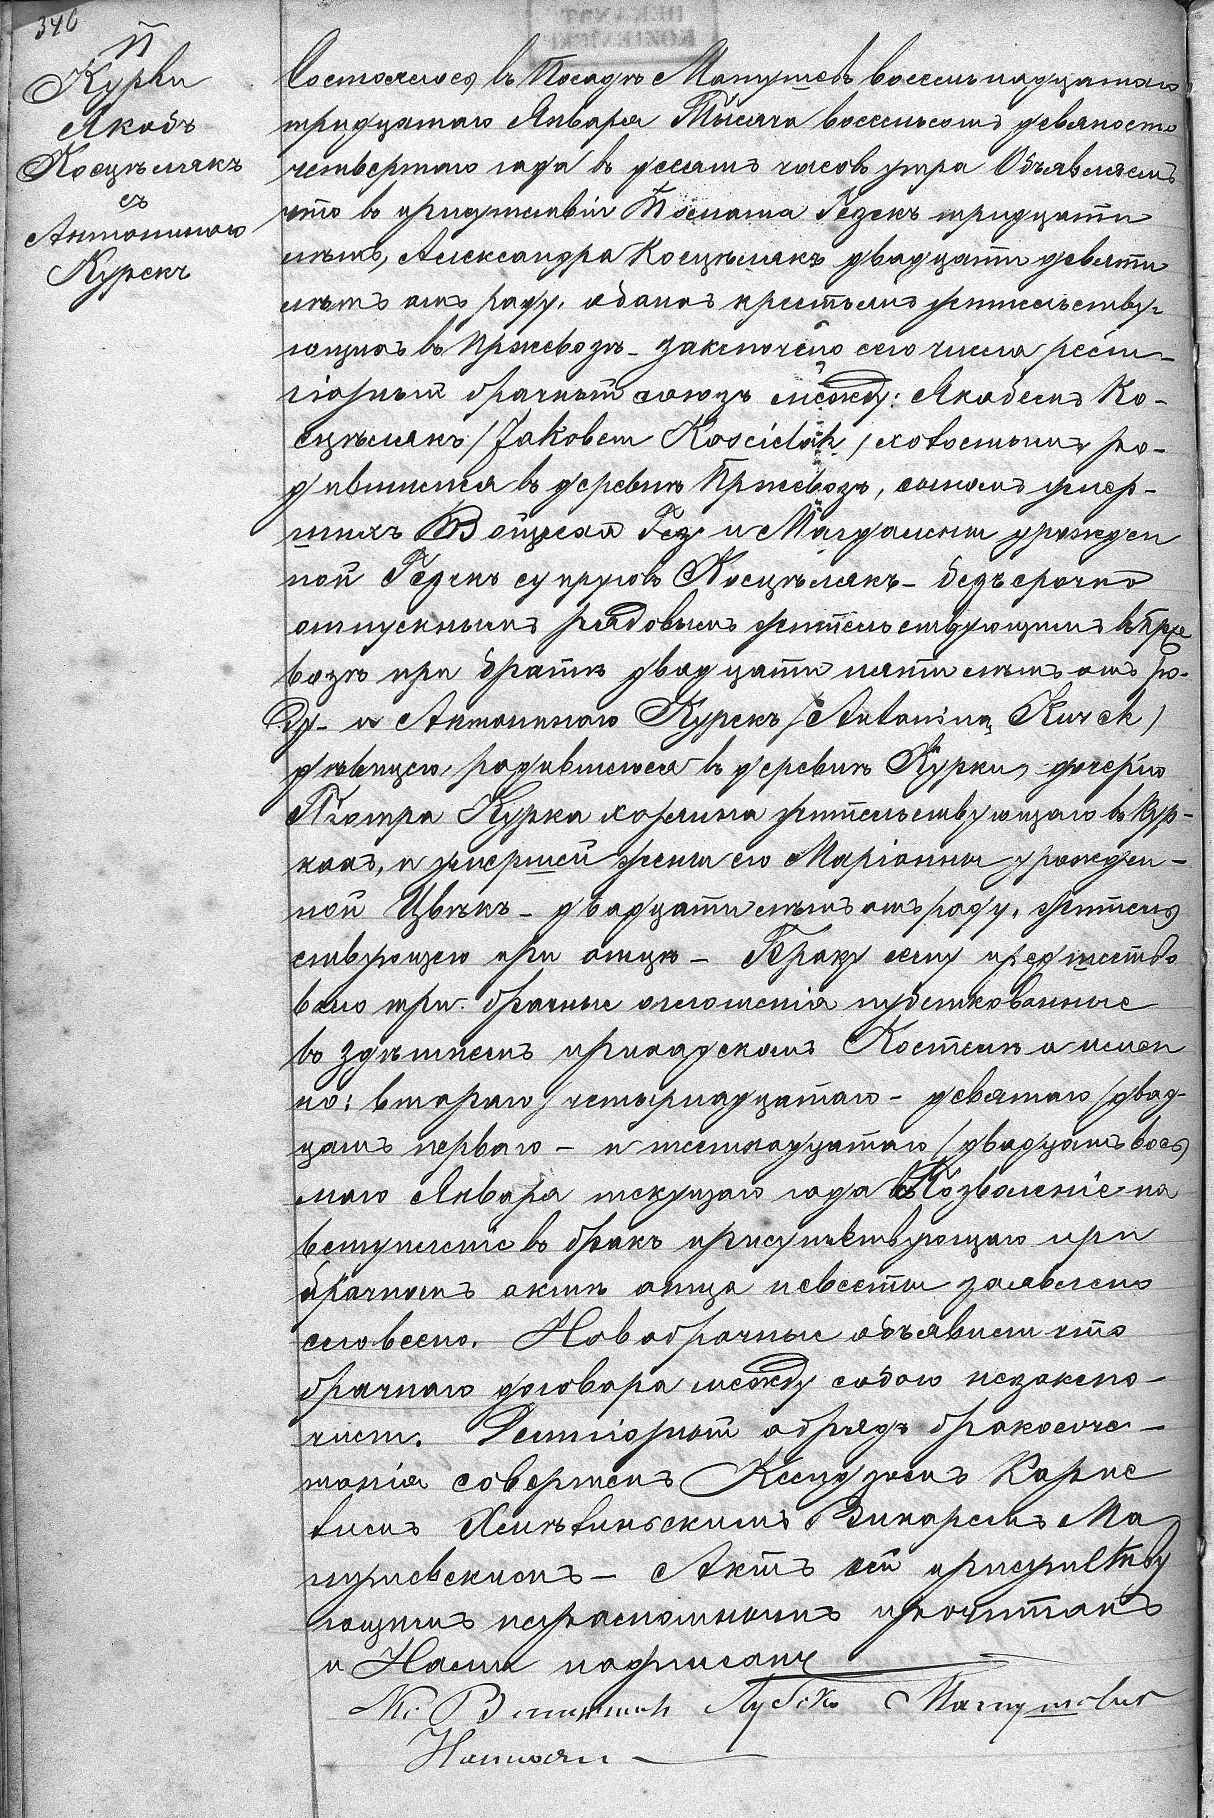 346
11
Курки
Якобъ
Косцѣлякъ
съ
Антониною
Курекъ
Состоялось въ Посадѣ Магнушевъ восемьнадцатаго
тридцатаго Января Тысяча восемьсотъ девяносто
четвертаго года въ десять часовъ утра Объявляемъ
что въ присутствіи Томаша Гезекъ тридцати
лѣтъ, Александра Косцѣлякъ двадцати девяти
лѣтъ отъ роду, обоихъ крестьянъ жительству-
ющихъ въ Пржевозѣ - заключено сего числа рели-
гіозный брачный союзъ между: Якобемъ Ко-
сцѣлякъ /Jakobem Kościelak/ холостымъ ро-
дившимся въ деревнѣ Пржевозъ, сыномъ умер-
шихъ Войцеха и Магдалены урожден
ной Гезекъ супруговъ Косцѣлякъ - безсрочно
отпускнымъ рядовымъ жительствующимъ въ Прже
возѣ при братѣ двадцати пяти лѣтъ отъ ро-
ду - и Антониною Курекъ /Antoniną Kurek/
дѣвицею, родившеюся въ деревнѣ Курки, дочерью
Піотра Курка жительствующаго въ Кур-
кахъ, и умершей жены его Маріанны урожден-
ной Цвѣкъ - двадцати лѣтъ отъ роду, житель
ствующею при отцѣ - Браку сему предшество
вало три брачные оглашенія публикованные
въ здѣшнемъ приходскомъ Костелѣ а имен
но: втораго /четырнадцатаго - девятаго /двад-
цать перваго - и шестнадцатаго /двадцать вось
маго Января текущаго года Позволеніе на
вступленіе въ бракъ присутствующаго при
брачномъ актѣ отца невесты заявлено
словесно. Новобрачные объявили что
брачнаго договора между собою незаклю-
чили. Религіозный обрядъ бракосоче-
танія совершенъ Ксендземъ
Викаремъ Ма
гнушевскимъ - Актъ сей присутству
ющимъ неграмотнымъ прочитанъ
и Нами подписанъ